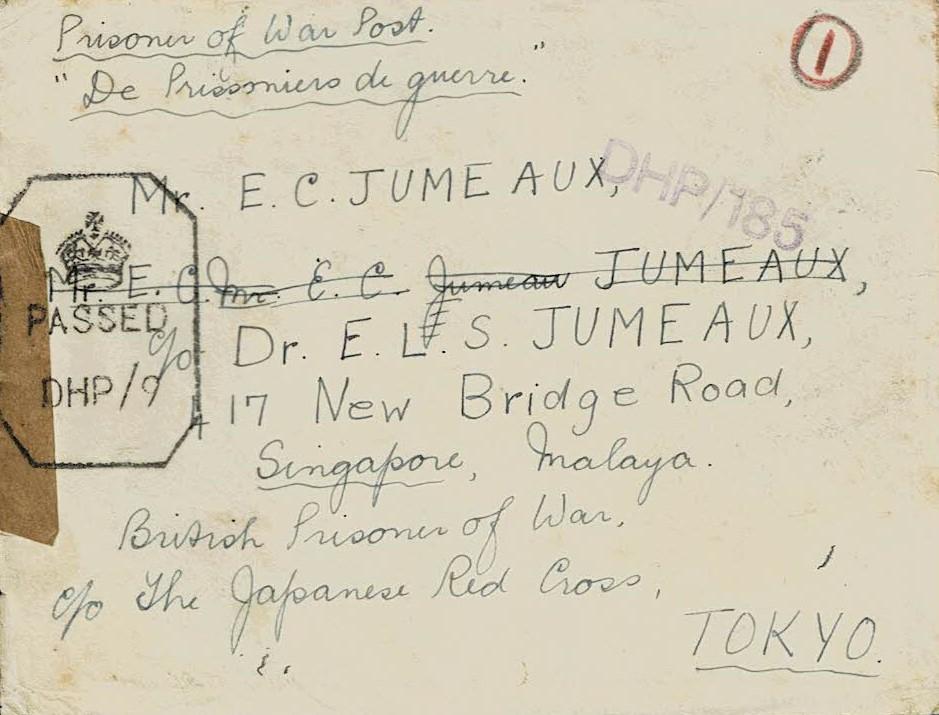 Prisoner of War Post.
" De Prisonniers de guerre."
1
DHP/185
Mr. E. C. JUMEAUX,
Mr. E. C. Mr. E. C. Jumeau JUMEAUX,
PASSED
DHP/9
c/o Dr. E. LE. S. JUMEAUX,
417 New Bridge Road,
Singapore, Malaya.
British Prisoner of War,
c/o The Japanese Red Cross,
TOKYO.